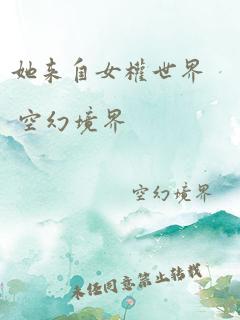 她来自女权世界
空幻境界
空幻境界
未经同意禁止转载